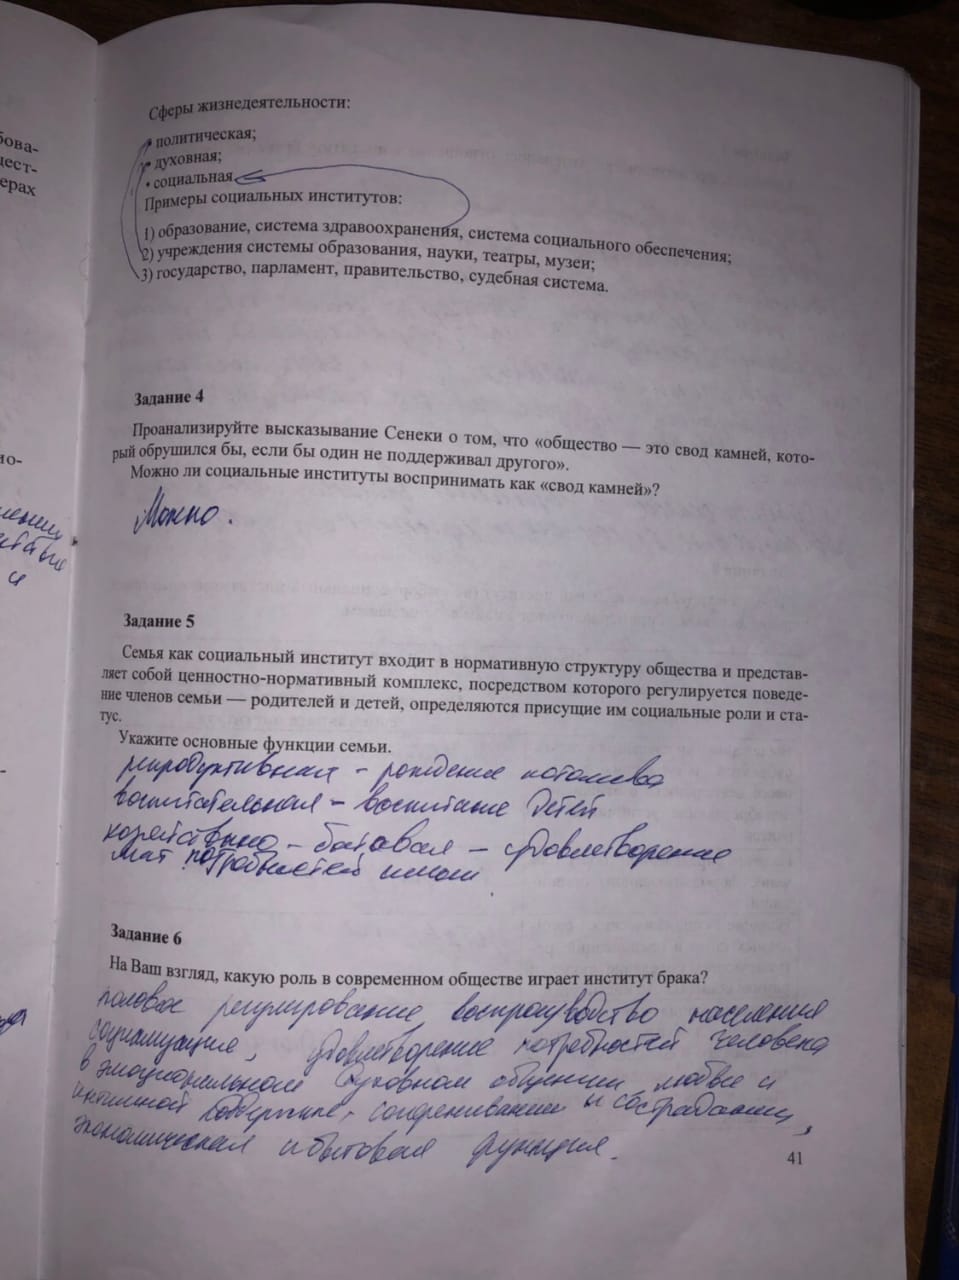 бова-
щест-
ерах
Сферы жизнедеятельности:
• политическая;
• духовная;
• социальная.
Примеры социальных институтов:
1) образование, система здравоохранения, система социального обеспечения;
2) учреждения системы образования, науки, театры, музеи;
3) государство, парламент, правительство, судебная система.
Задание 4
Проанализируйте высказывание Сенеки о том, что «общество — это свод камней, кото-
рый обрушился бы, если бы один не поддерживал другого».
Можно ли социальные институты воспринимать как «свод камней»?
Можно.
Задание 5
Семья как социальный институт входит в нормативную структуру общества и представ-
ляет собой ценностно-нормативный комплекс, посредством которого регулируется поведе-
ние членов семьи — родителей и детей, определяются присущие им социальные роли и ста-
тус.
Укажите основные функции семьи.
репродуктивная - рождение потомства
воспитательная - воспитание детей
хозяйственно - бытовая - удовлетворение
мат. потребностей
Задание 6
На Ваш взгляд, какую роль в современном обществе играет институт брака?
половое регулирование, воспроизводство населения
социализация, удовлетворение потребностей человека
в эмоциональном духовном общении, любви и
интимной поддержке, сопереживании и сострадании,
экономическая и бытовая функция.
41